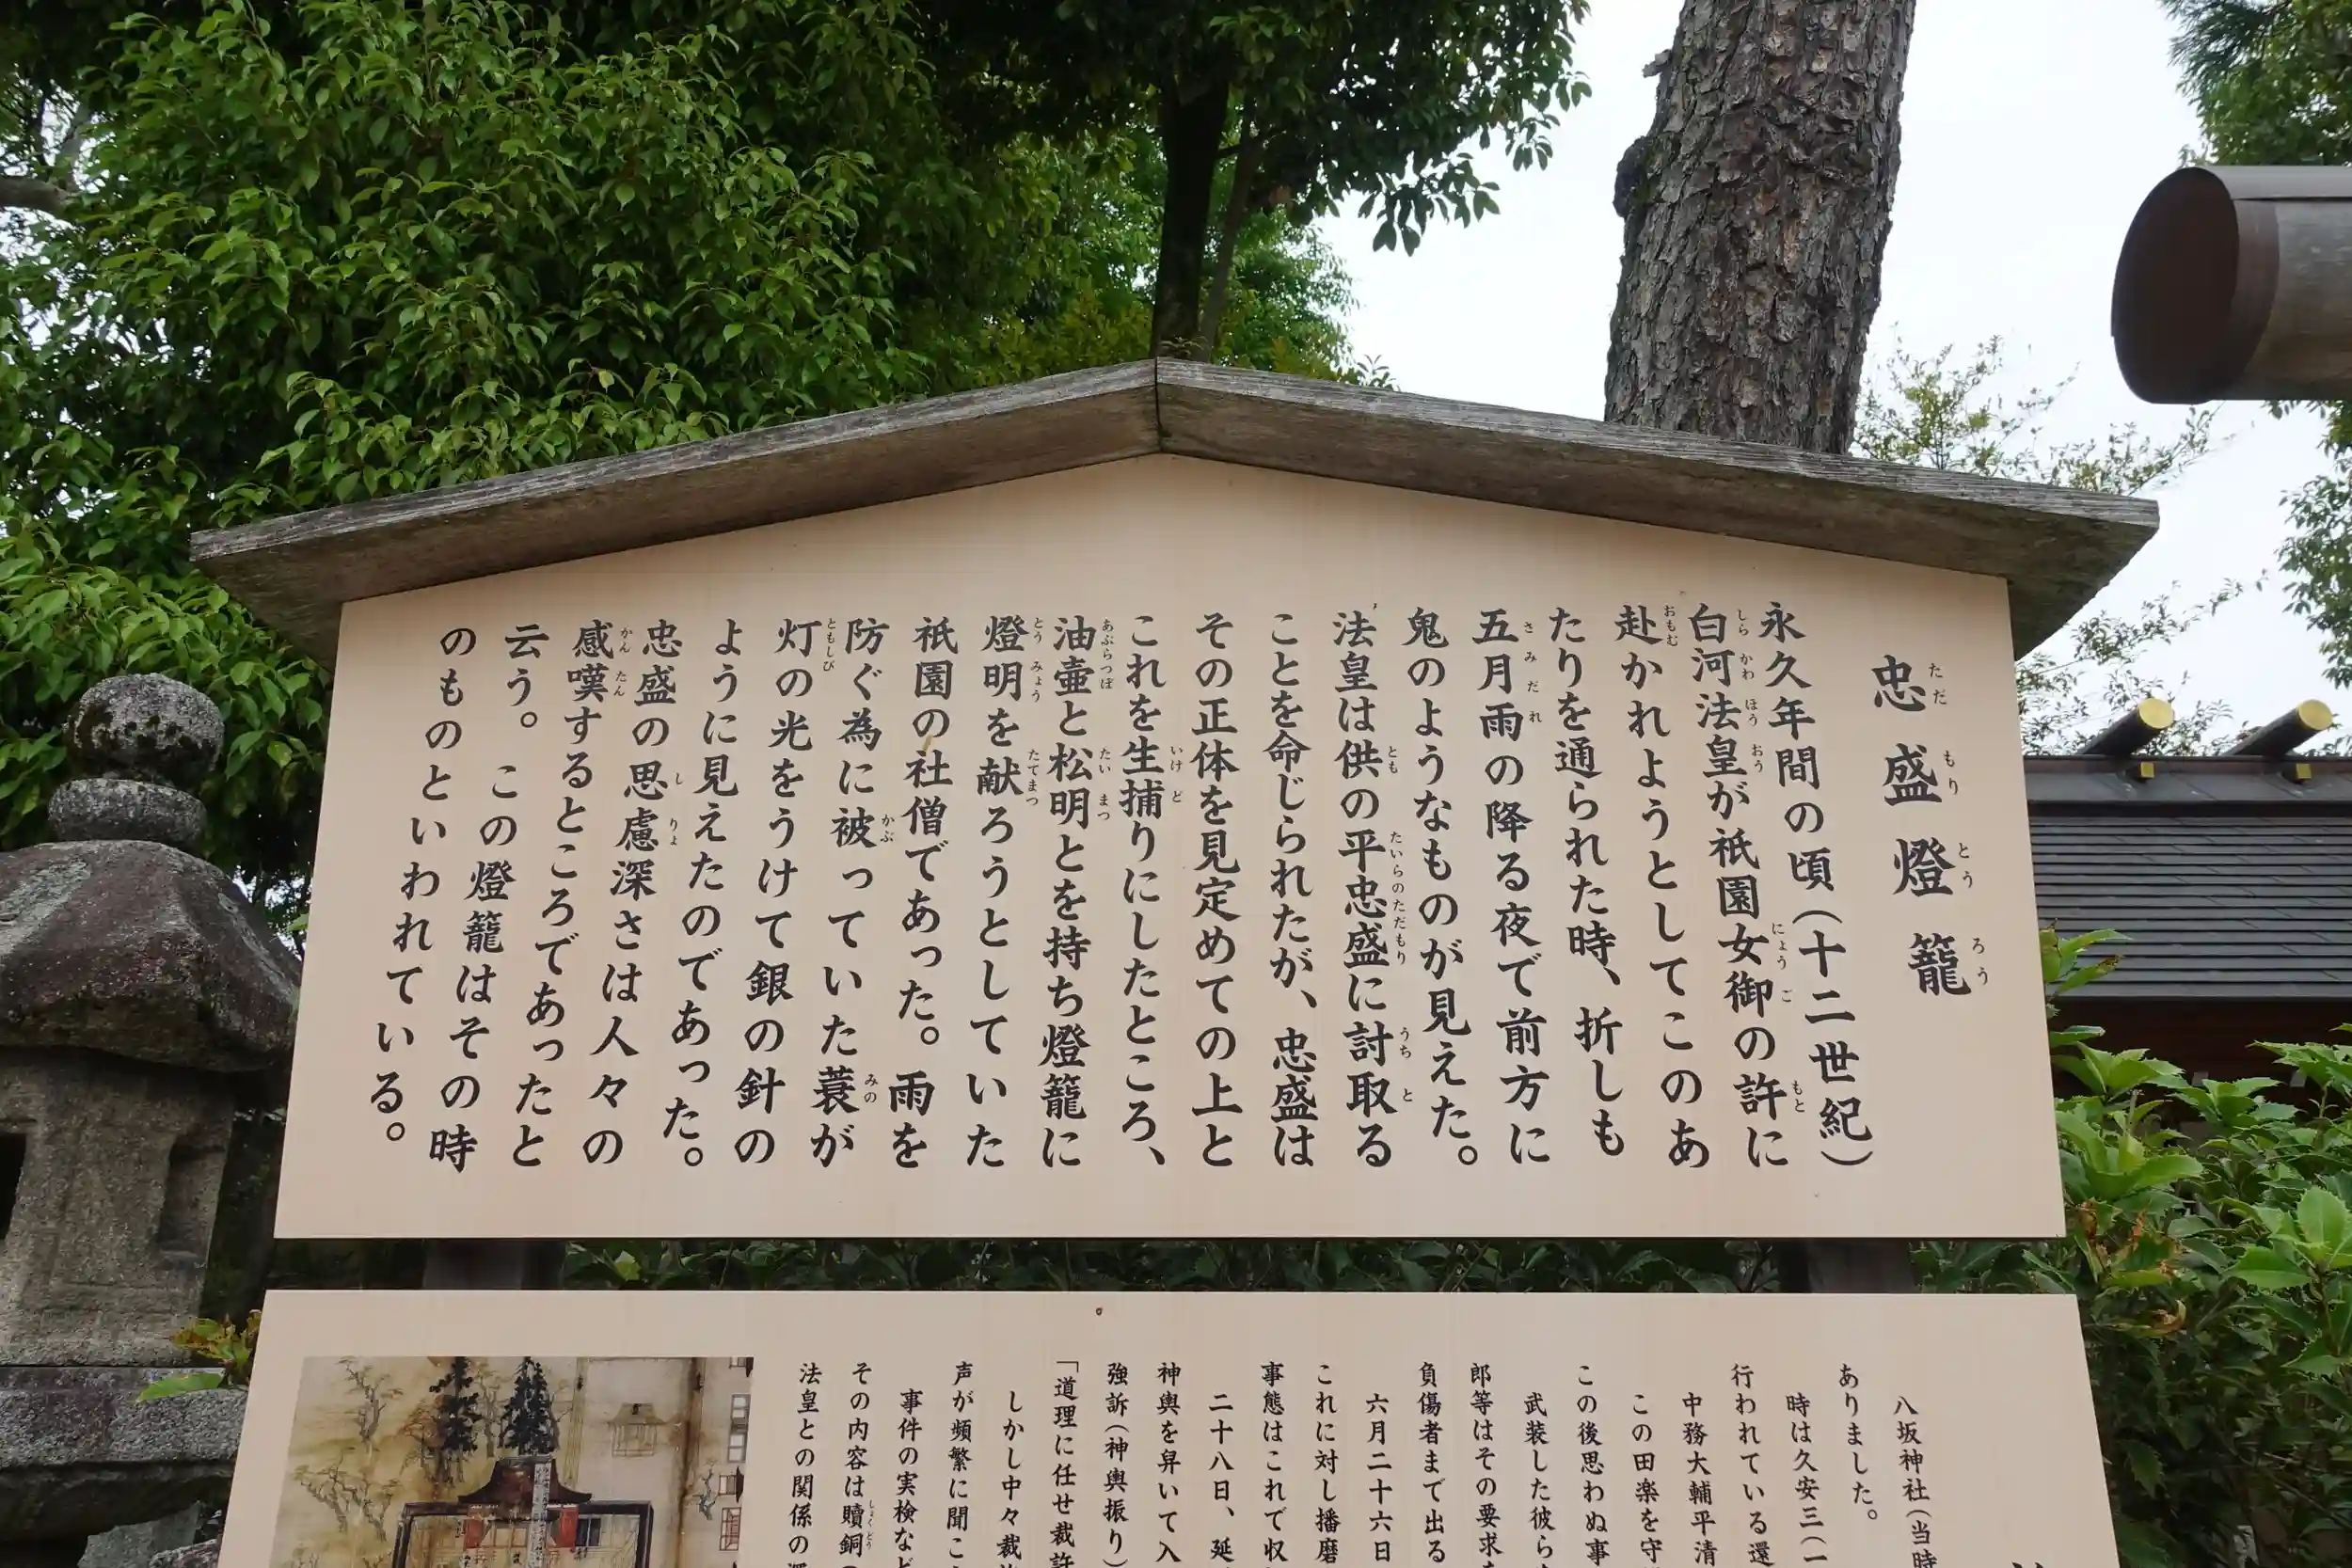 忠盛燈籠
永久年間の頃(十二世紀)
白河法皇が祇園女御の許に
赴かれようとしてこのあ
たりを通られた時、折しも
五月雨の降る夜で前方に
鬼のようなものが見えた。
法皇は供の平忠盛に討取る
ことを命じられたが、忠盛は
その正体を見定めての上と
これを生捕りにしたところ、
油壷と松明とを持ち燈籠に
燈明を献ろうとしていた
祇園の社僧であった。雨を
防ぐ為に被っていた蓑が
灯の光をうけて銀の針の
ように見えたのであった。
忠盛の思慮深さは人々の
感嘆するところであったと
云う。この燈籠はその時
のものといわれている。
八坂神社(当時
ありました。
時は久安三(一
行われている還
中務大輔平清
この田楽を守
この後思わぬ事
武装した彼ら
郎等はその要求
負傷者まで出る
六月二十六日
これに対し播磨
事態はこれで収
二十八日、延
神輿を舁いて入
強訴(神輿振り)
「道理に任せ裁許
しかし中々裁
声が頻繁に聞こ
事件の実検など
その内容は贖銅(
法皇との関係の